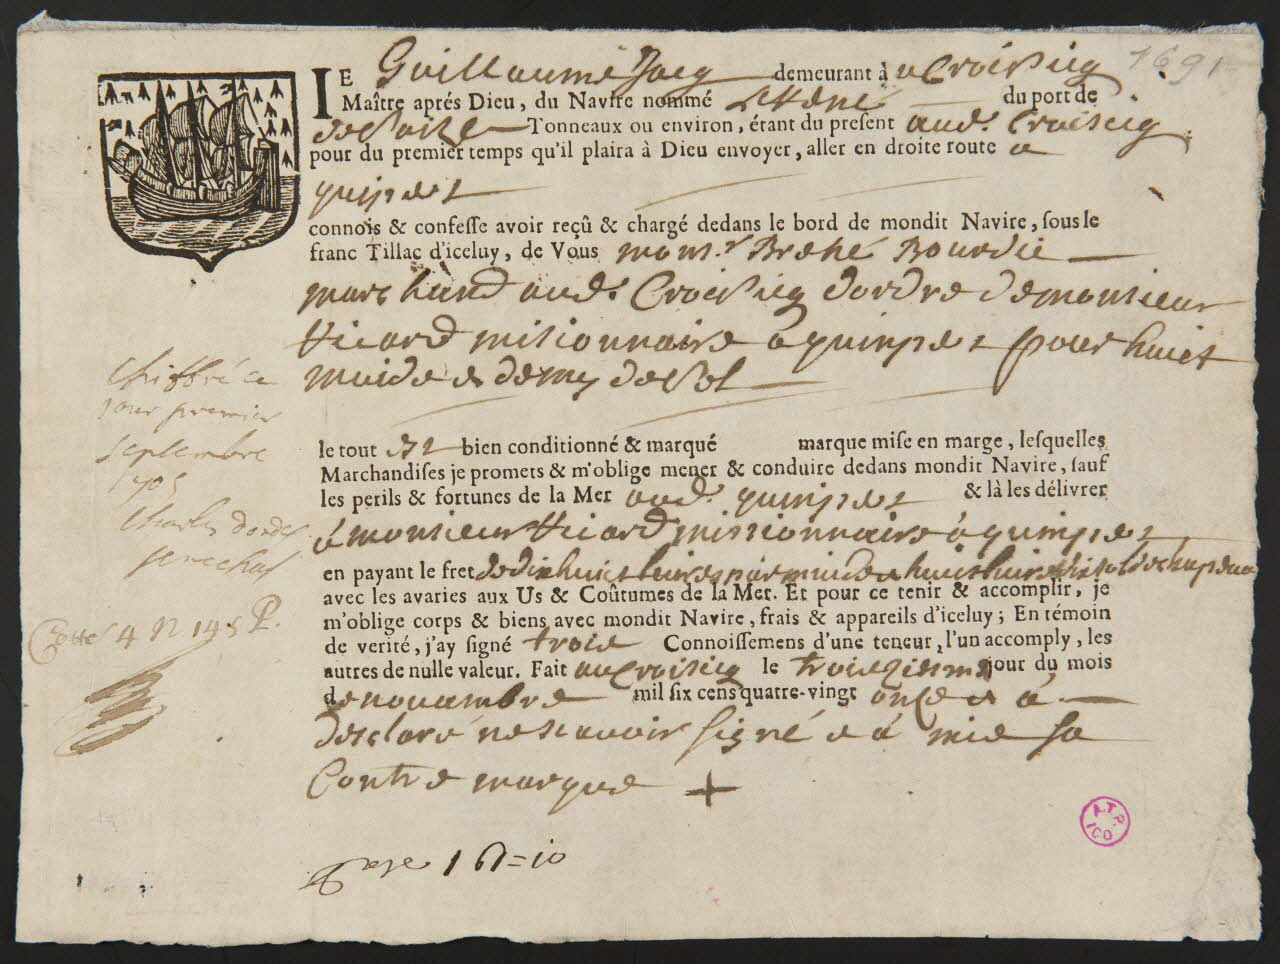 1691
JE Guillaume Jacq demeurant à au Croisicq
Maître aprés Dieu, du Navire nommé du port de
Tonneaux ou environ, étant du preſent aud. Croisicq
pour du premier temps qu'il plaira à Dieu envoyer, aller en droite route a
quinper
connois & confeſſe avoir reçû & chargé dedans le bord de mondit Navire, ſous le
franc Tillac d'iceluy, de Vous mons.r René Bourdic
marchand aud. Croisicq dordre de monsieur
Hicard misionnaire a quinper pour huict
muide & demy de sel
le tout bien conditionné & marqué marque miſe en marge, leſquelles
Marchandiſes je promets & m'oblige mener & conduire dedans mondit Navire, ſauf
les perils & fortunes de la Mer aud. quinper & là les délivrer
à monsieur Hicard missionnaire à quinper
en payant le fret de dix huict livres par muid
avec les avaries aux Us & Coûtumes de la Mer. Et pour ce tenir & accomplir, je
m'oblige corps & biens avec mondit Navire, frais & appareils d'iceluy; En témoin
de verité, j'ay ſigné trois Connoiſſemens d'une teneur, l'un accomply, les
autres de nulle valeur. Fait au Croisicq le troiziesme jour du mois
de nouambre mil ſix cens quatre-vingt onze & a
desclaré ne scauoir signé e a mis sa
Contre marque +
Chiffré ce
jour premier
septembre
1705
Charles
senechal
Cotte 4 N 145 P.
A.T.P.
ICO